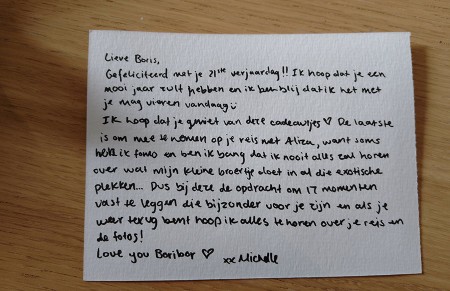 Lieve Boris,
Gefeliciteerd met je 21ste verjaardag!! Ik hoop dat je een
mooi jaar zult hebben en ik ben blij dat ik het met
je mag vieren vandaag :)
Ik hoop dat je geniet van deze cadeautjes ♡ De laatste
is om mee te nemen op je reis met Aliza, want soms
heb ik fomo en ben ik bang dat ik nooit alles zal horen
over wat mijn kleine broertje doet in al die exotische
plekken... Dus bij deze de opdracht om 17 momenten
vast te leggen die bijzonder voor je zijn en als je
weer terug bent hoop ik alles te horen over je reis en
de fotos!
Love you Boribor ♡ xx Michelle